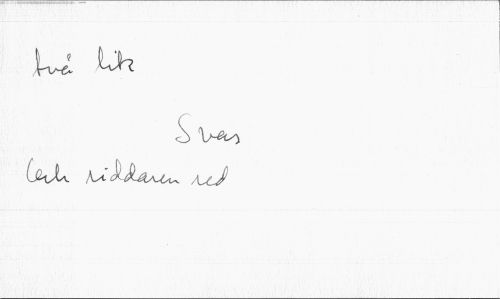 två lik
Svar
Och riddaren red